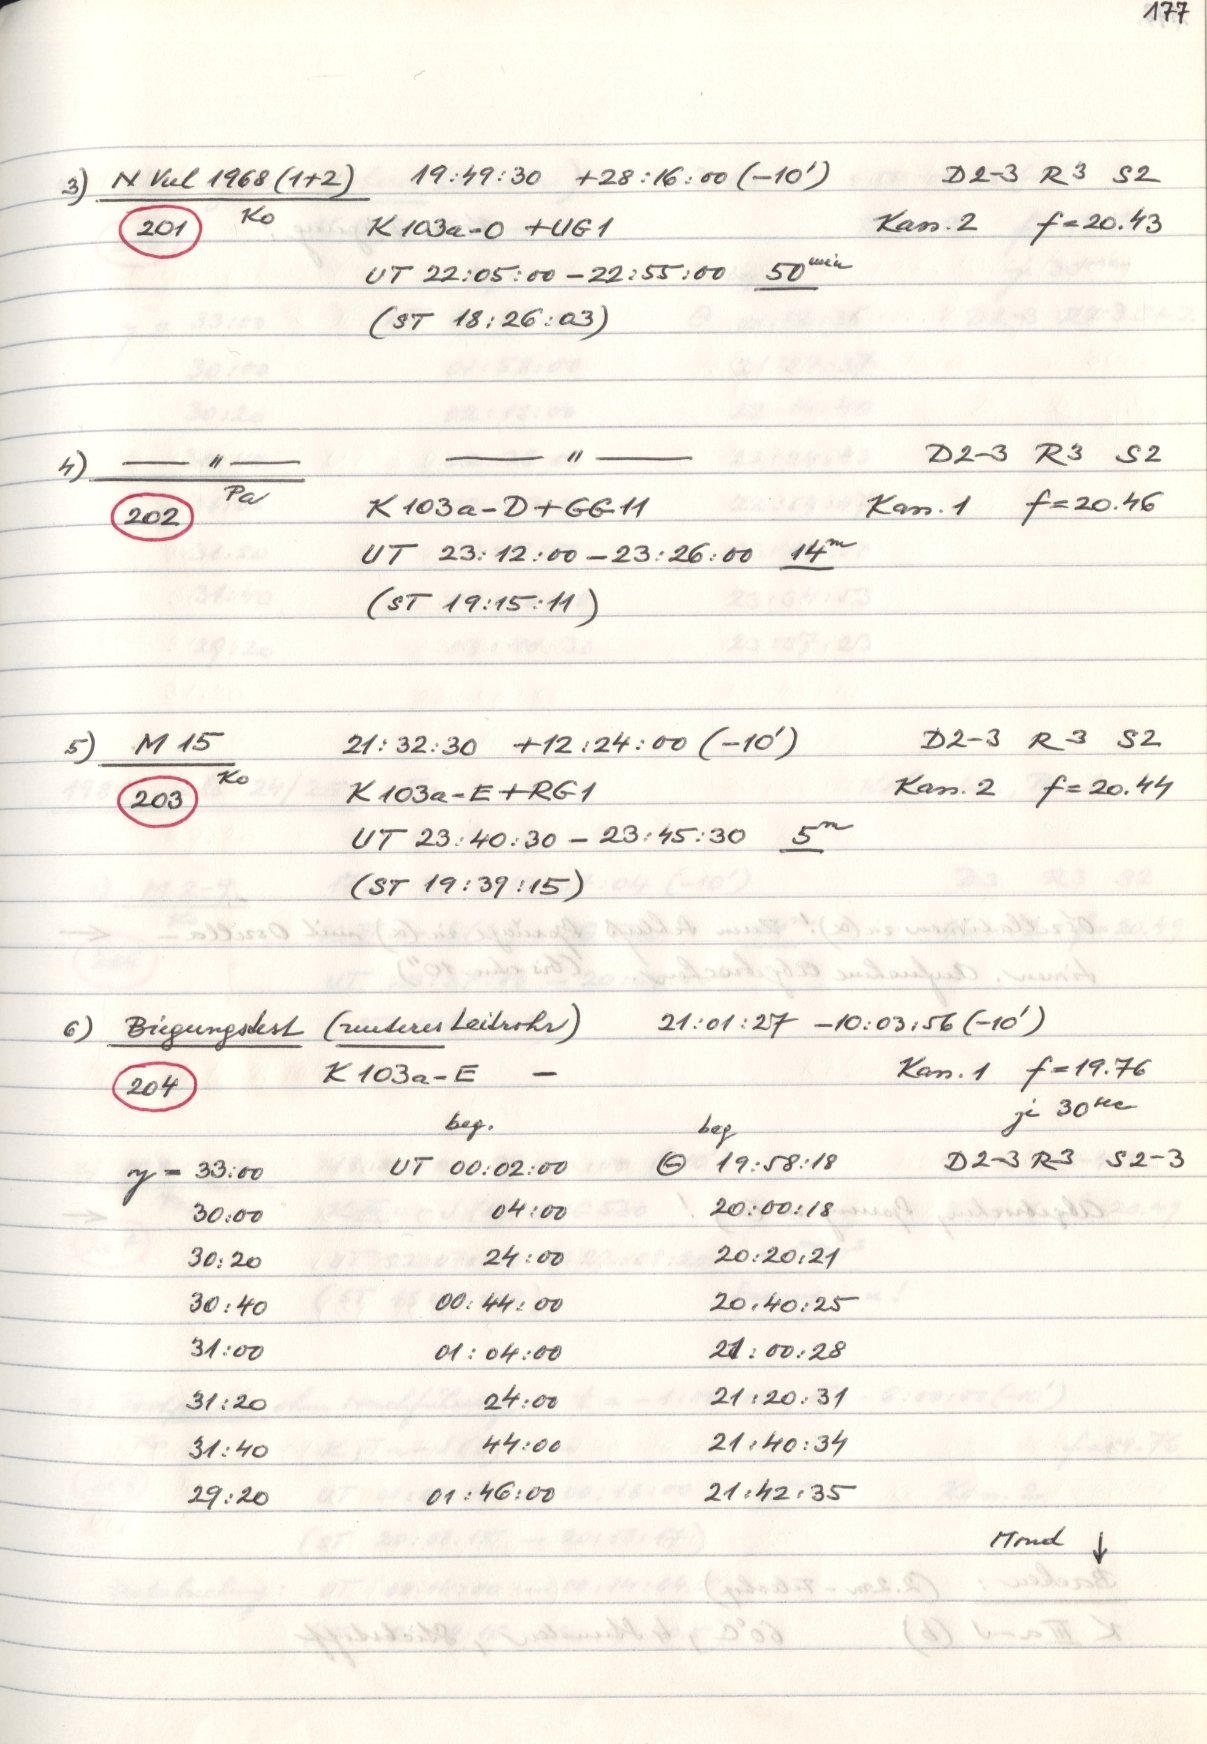 177
3) N Vul 1968 (1+2) 19:49:30 +28:16:00 (-10') D2-3 R3 S2
201 Ko K 103a-O +UG1 Kass. 2 f=20.43
UT 22:05:00 - 22:55:00 50 min
(ST 18:26:03)
4) — " — — " — D2-3 R3 S2
202 Pa K 103a-D + GG 11 Kass. 1 f=20.46
UT 23:12:00 - 23:26:00 14 m
(ST 19:15:11)
5) M 15 21:32:30 +12:24:00 (-10') D2-3 R3 S2
203 Ko K 103a-E + RG1 Kass. 2 f=20.44
UT 23:40:30 - 23:45:30 5 m
(ST 19:39:15)
6) Biegungstest (unteres Leitrohr) 21:01:27 -10:03:56 (-10')
204 K 103a-E — Kass. 1 f=19.76
je 30 sec
beg. beg
y = 33:00 UT 00:02:00 Θ 19:58:18 D2-3 R3 S2-3
30:00 04:00 20:00:18
30:20 24:00 20:20:21
30:40 00:44:00 20:40:25
31:00 01:04:00 21:00:28
31:20 24:00 21:20:31
31:40 44:00 21:40:34
29:20 01:46:00 21:42:35
Mond ↓